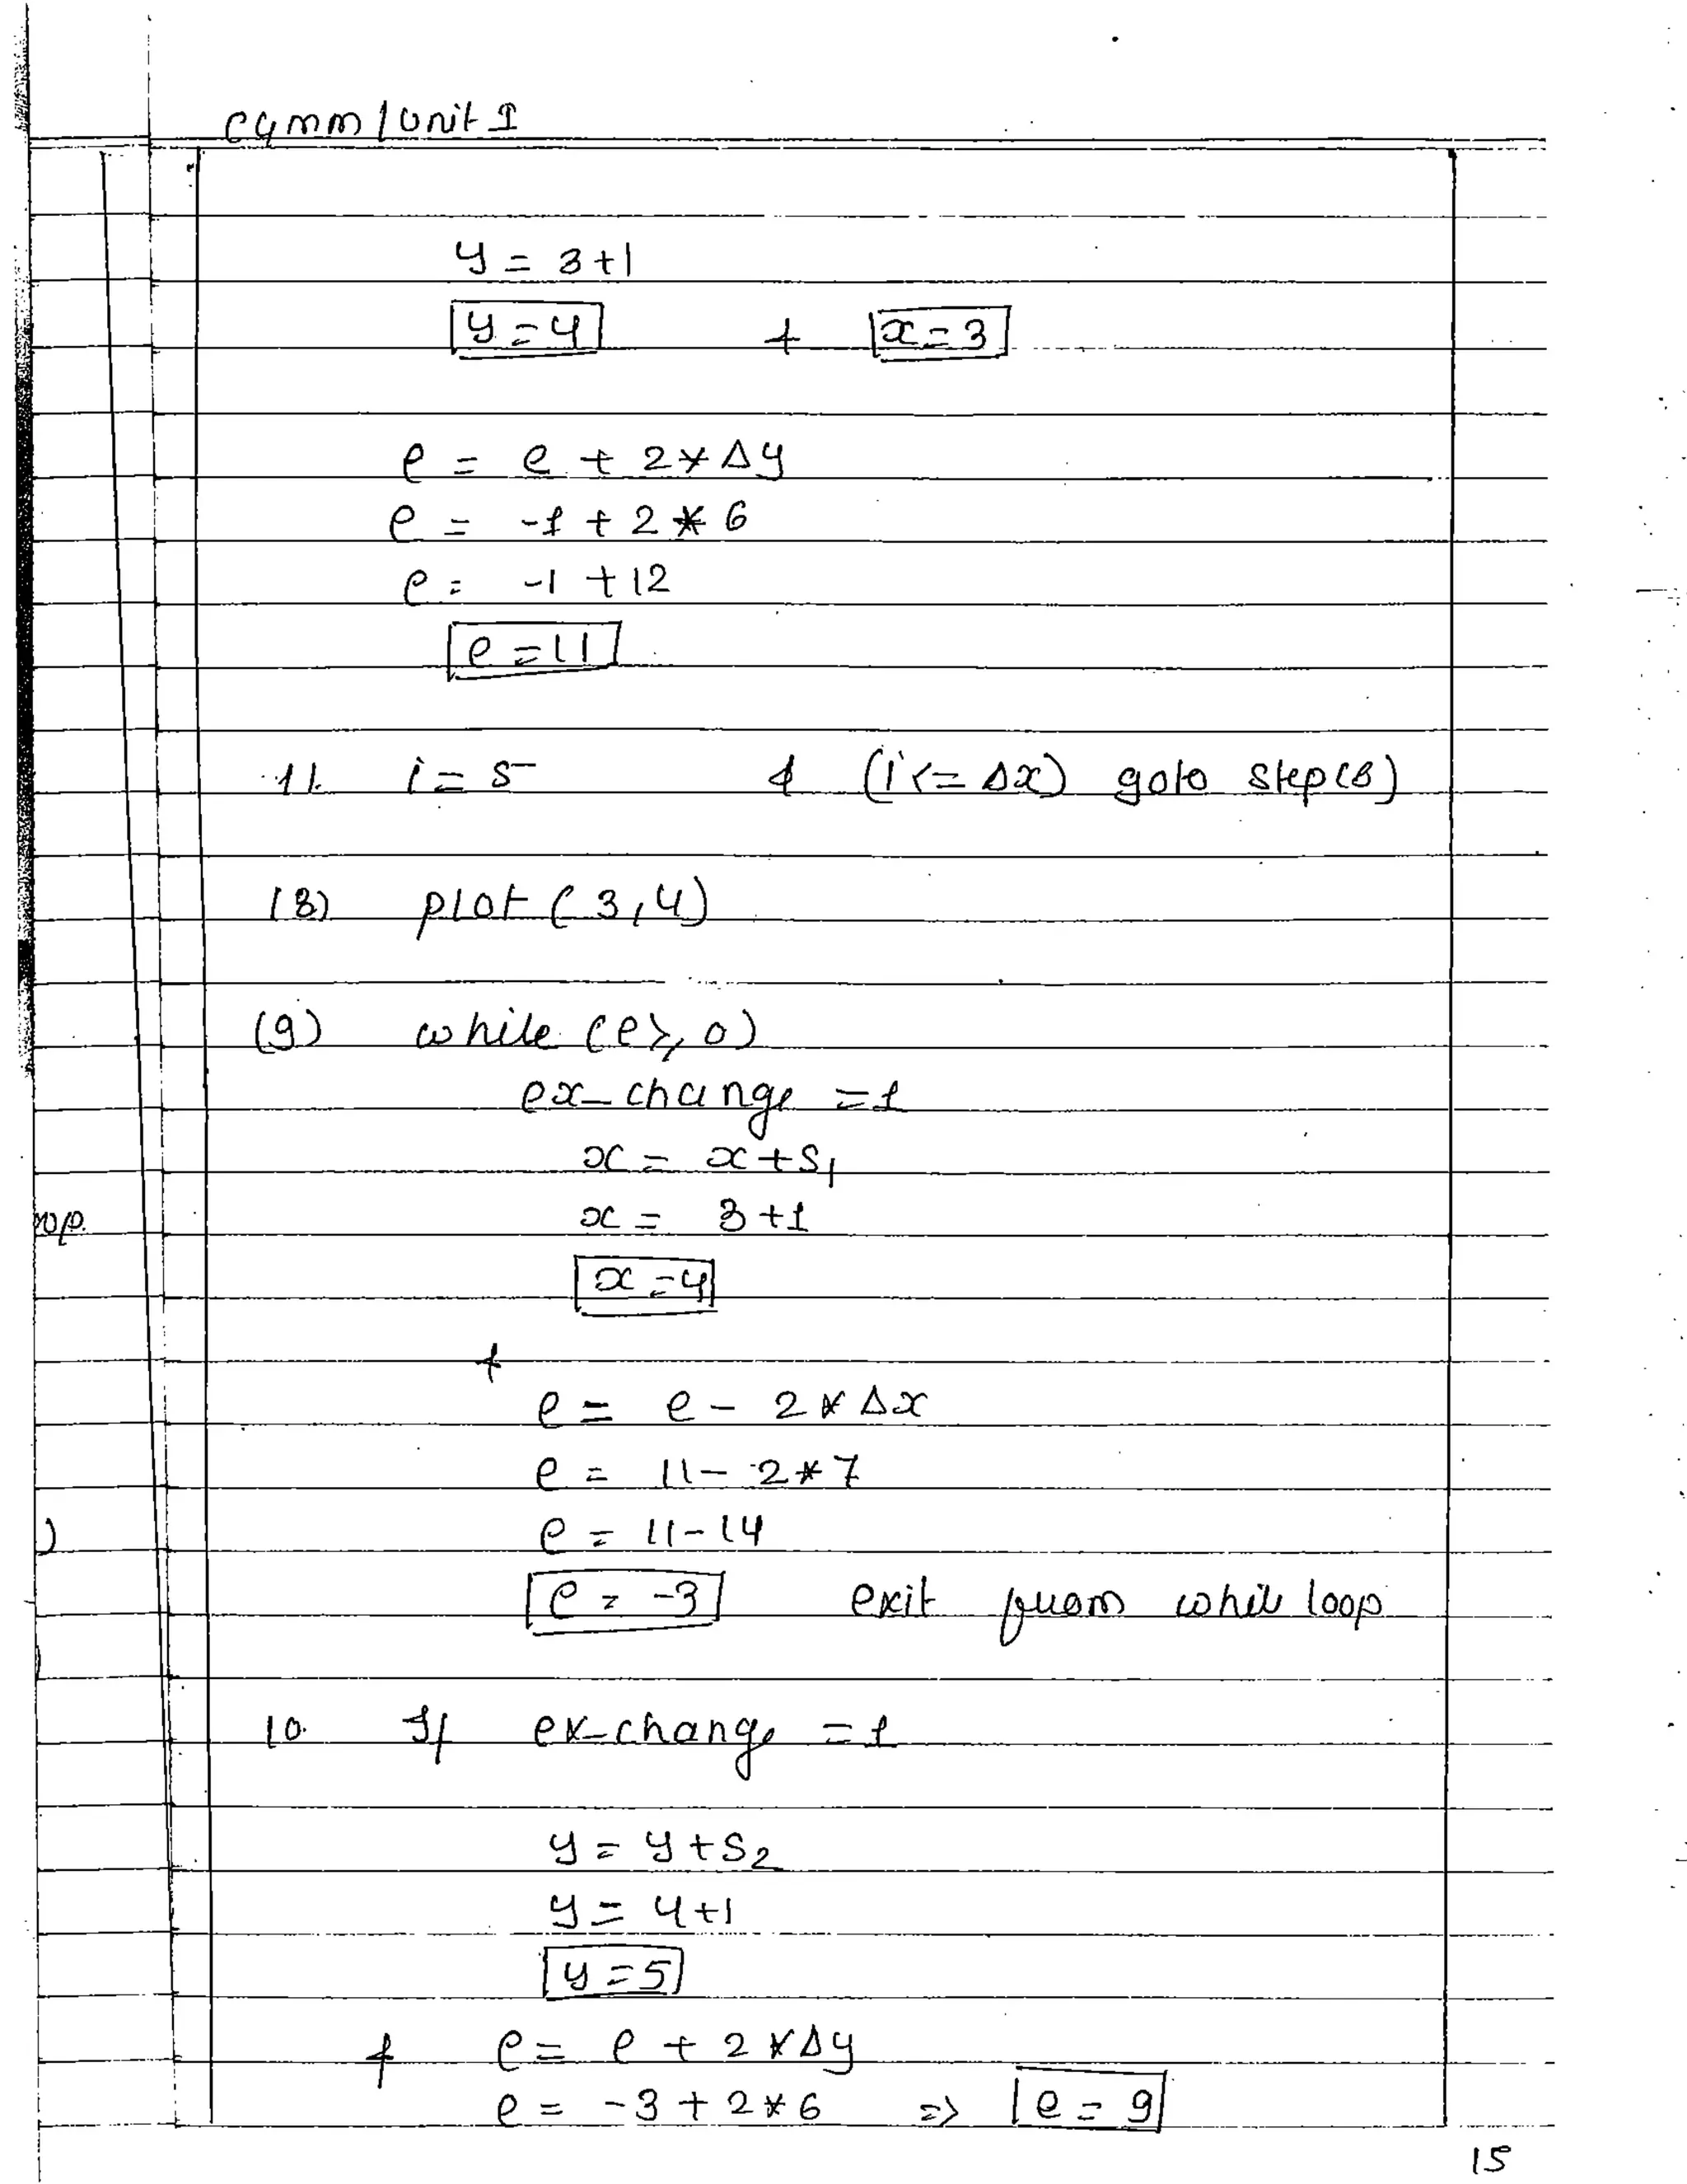 CGMM / Unit I
y = 3+1
y = 4 & x = 3
e = e + 2*Δy
e = -1 + 2 * 6
e = -1 + 12
e = 11
11. i = 5 & (i <= Δx) goto step(8)
(8) plot (3,4)
(9) while (e ≥ 0)
ex-change = 1
x = x + S1
x = 3 + 1
x = 4
&
e = e - 2 * Δx
e = 11 - 2 * 7
)
e = 11 - 14
e = -3 exit from while loop
10. If ex-change = 1
y = y + S2
y = 4 + 1
y = 5
& e = e + 2 * Δy
e = -3 + 2 * 6 => e = 9
15